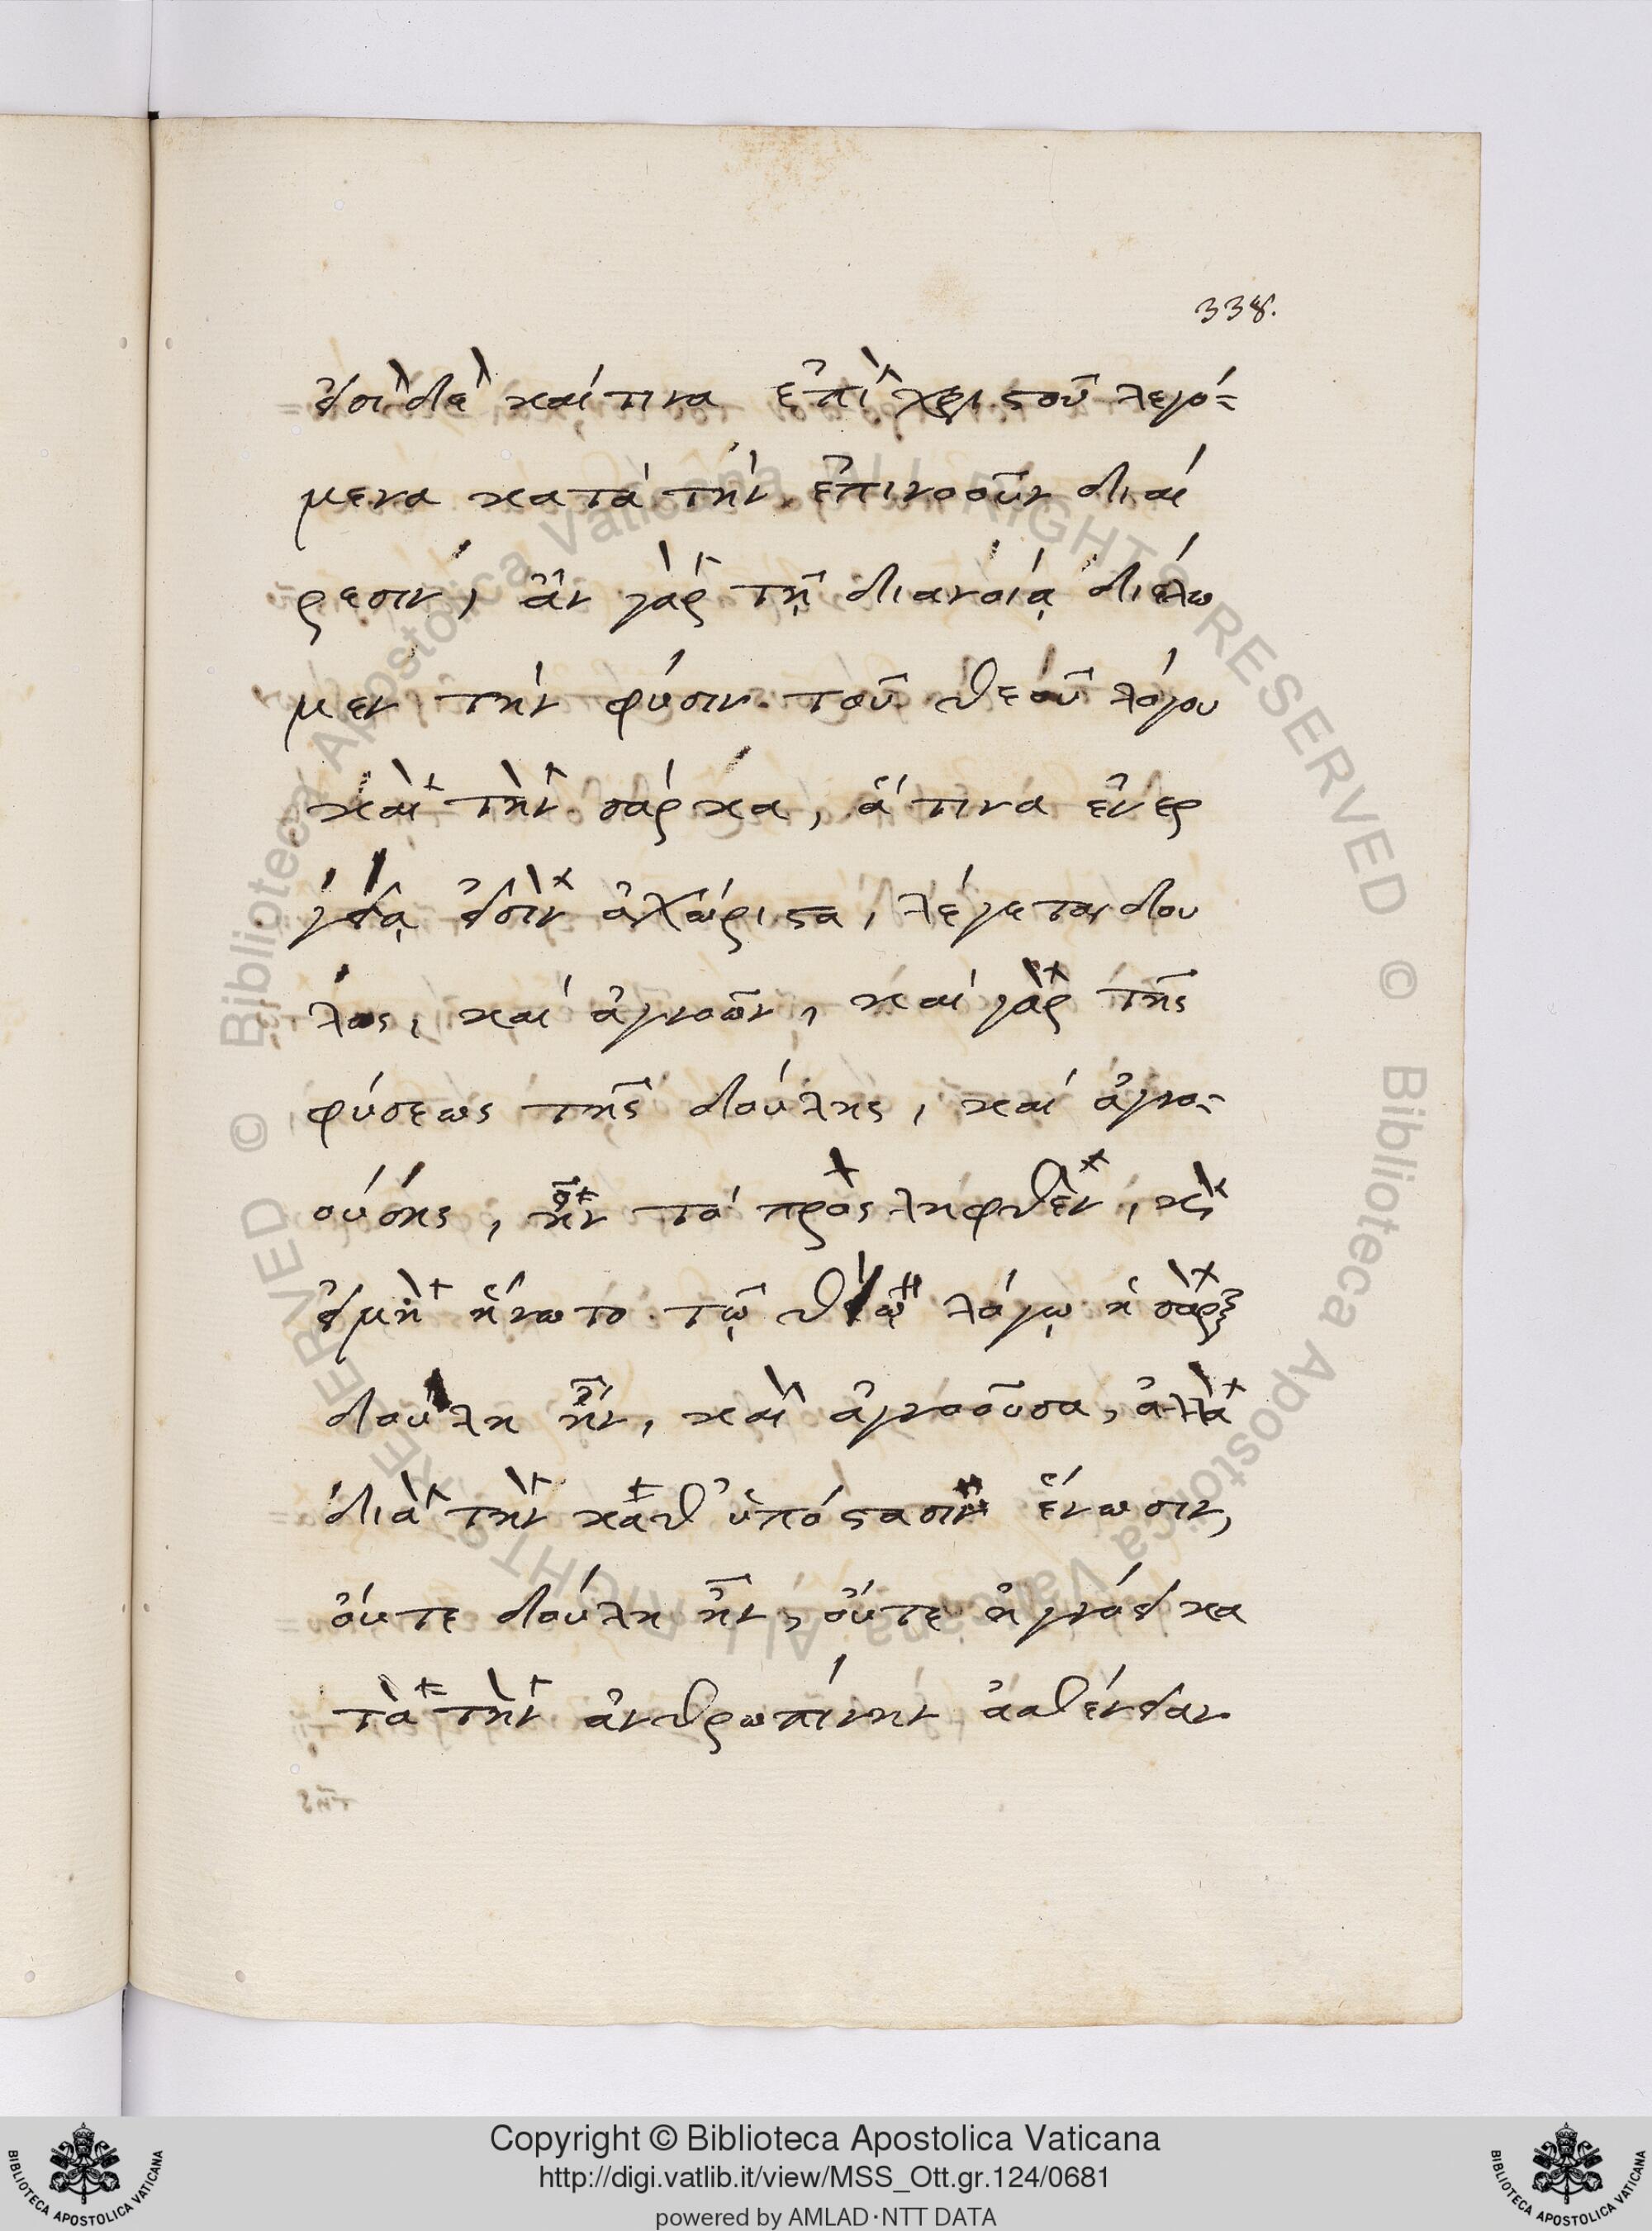 338.
εἰσὶ δὲ καί τινα ἐπὶ χριστοῦ λεγό=
μενα κατά τήν ἐπινοοῦν διαί
ρεσιν, ἂν γάρ τῇ διανοίᾳ διέλω
μεν τήν φύσιν τοῦ θεοῦ λόγου
καὶ τὴν σάρκα, ἅ τινα ἐνερ
γείᾳ εἰσὶν ἀχώριστα, λέγεται δου
λος, καί ἀγνοῶν, καί γὰρ τῆς
φύσεως τῆς δούλης, καί ἀγνο=
ούσης, ἦν τό προσληφθὲν, κὶ
εἰ μὴ ἥνωτο τῷ θεῷ λόγῳ ἡ σὰρξ
δούλη ἦν, καὶ ἀγνοοῦσα, ἀλλὰ
διὰ τὴν καθ' ὑπόστασιν ἕνωσιν,
οὔτε δούλη ἦν, οὔτε ἠγνόει κα
τὰ τὴν ἀνθρωπίνην ἀσθένειαν
Copyright © Biblioteca Apostolica Vaticana
http://digi.vatlib.it/view/MSS_Ott.gr.124/0681
powered by AMLAD·NTT DATA
BIBLIOTECA APOSTOLICA VATICANA
BIBLIOTECA APOSTOLICA VATICANA
© Biblioteca Apostolica Vaticana ALL RIGHTS RESERVED © Biblioteca Apostolica Vaticana ALL RIGHTS RESERVED